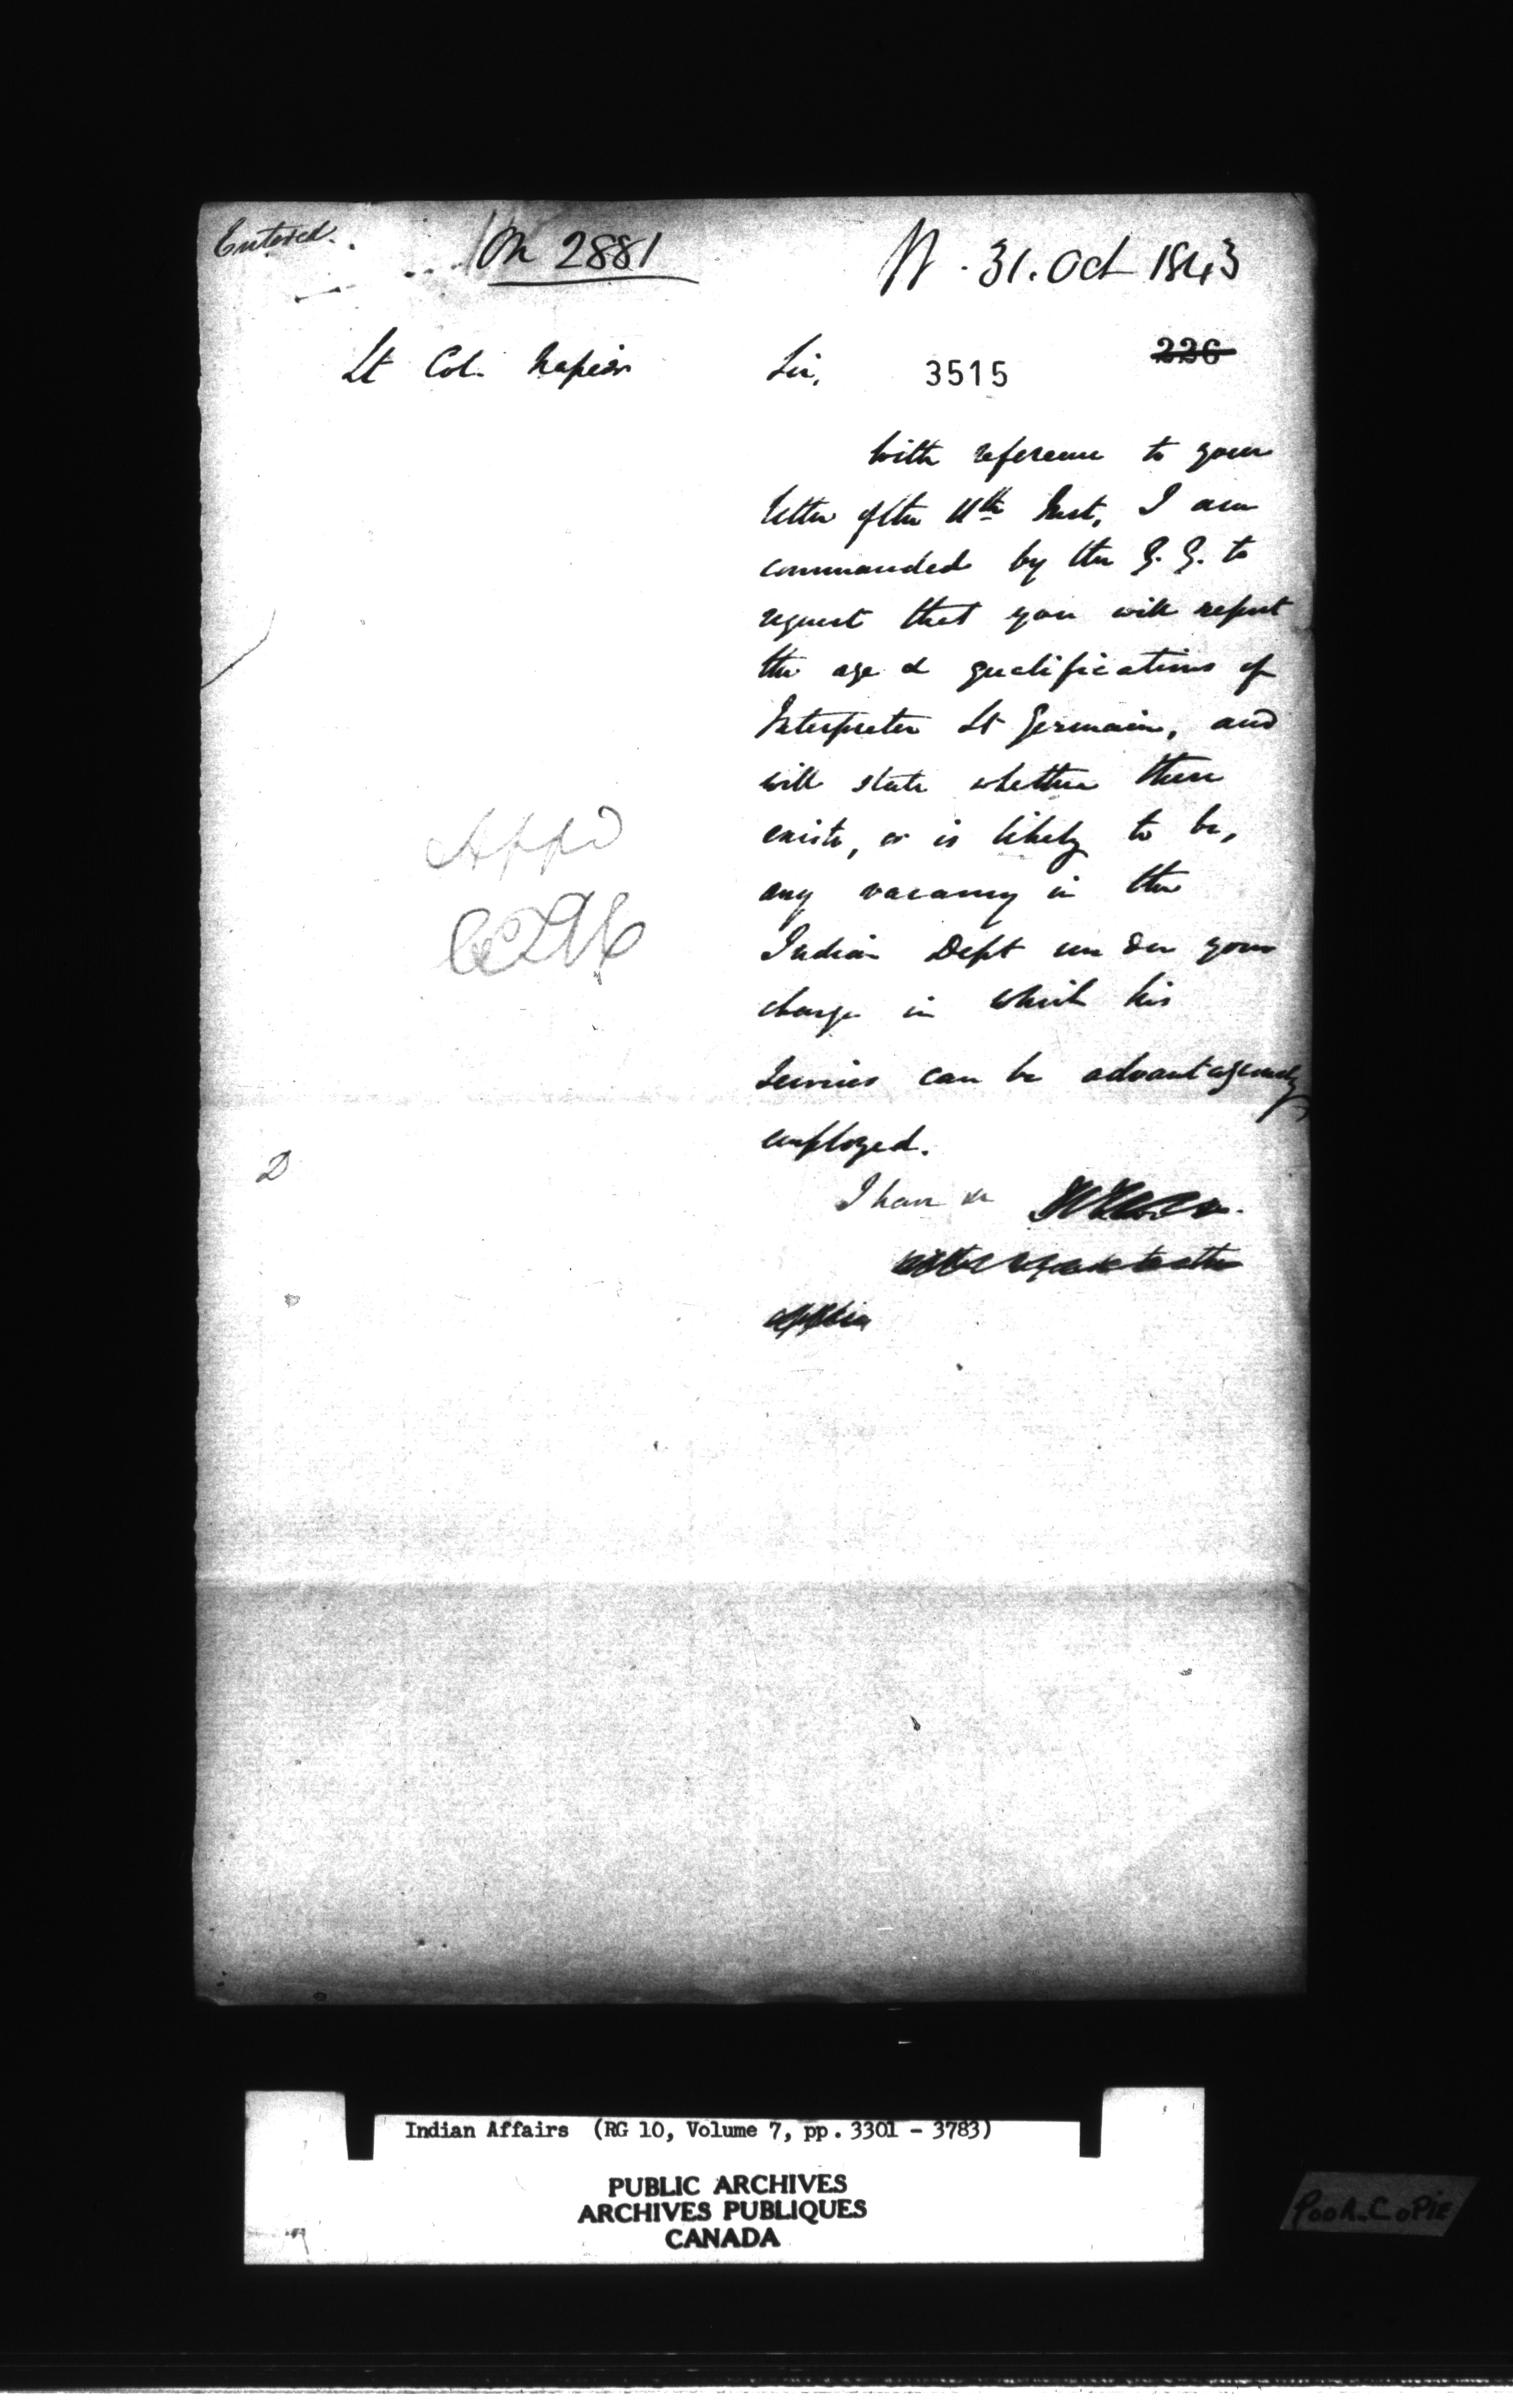 Entered.
On 2881
31. Oct 1843
Lt Col. Napier
Sir,
3515
226
With reference to your
letter of the 11th Inst, I am
commanded by the G. G. to
request that you will report
the age & qualifications of
Interpreter St Germain, and
will state whether there
exists, or is likely to be,
any vacancy in the
Indian Dept under your
charge in which his
Services can be advantageously
employed.
I have &c
Appd
D
Indian Affairs (RG 10, Volume 7, pp. 3301 - 3783)
PUBLIC ARCHIVES
ARCHIVES PUBLIQUES
CANADA
POOR COPIE